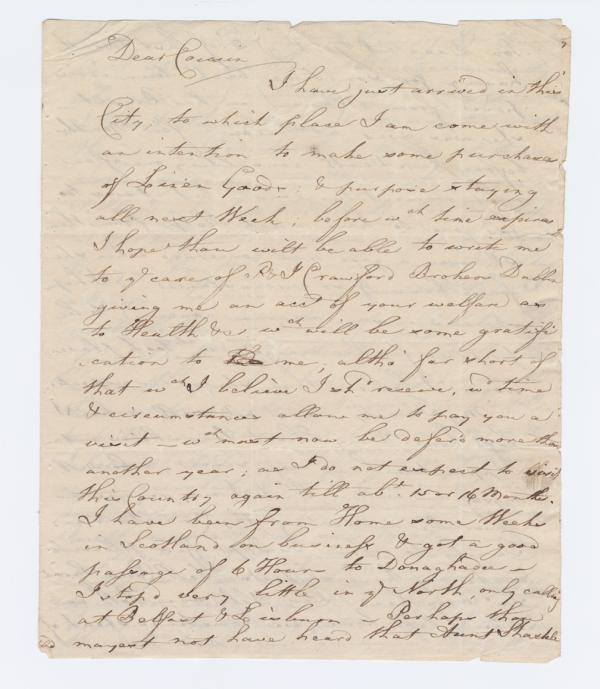 Dear Cousin
I have just arrived in this
City, to which place I am come with
an intention to make some purchases
of Linen Goods, & purpose staying
all next Week; before wch time expires
I hope thou wilt be able to write me
to ye care of R & J Crawford Brokers Dublin
giving me an acct of your welfare as
to Health &c wch will be some gratifi
cation to me, altho' far short of
that wch I believe I shd receive, wd time
& circumstances allow me to pay you a
visit — wch must now be deferd more than
another year; as I do not expect to visit
this Country again till abt. 15 or 16 Months.
I have been from Home some Weeks
in Scotland on business & got a good
passage of 6 Hours to Donaghadee —
I stop'd very little in ye North, only calling
at Belfast & Lisburn — Perhaps thou
mayest not have heard that Aunt Shackle